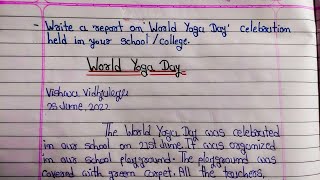 - Write a report on 'World Yoga Day' celebration
held in your school/college.
World Yoga Day
Vishwa Vidhyalaya
25 June, 2022
The World Yoga Day was celebrated
in our school on 21st June. It was organized
in our school playground. The playground was
covered with green carpet. All the teachers,